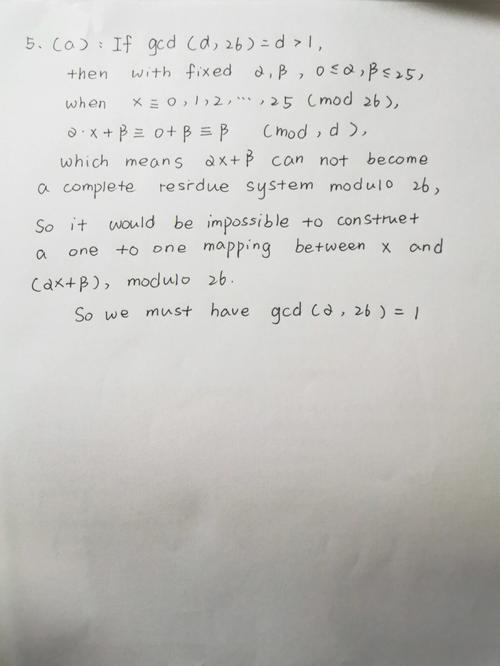 5. (a): If gcd (α, 26) = d > 1,
then with fixed α, β, 0 ≤ α, β ≤ 25,
when x ≡ 0, 1, 2, ⋯, 25 (mod 26),
α·x + β ≡ 0 + β ≡ β (mod, d),
which means αx + β can not become
a complete residue system modulo 26,
So it would be impossible to construct
a one to one mapping between x and
(αx + β), modulo 26.
So we must have gcd (α, 26) = 1